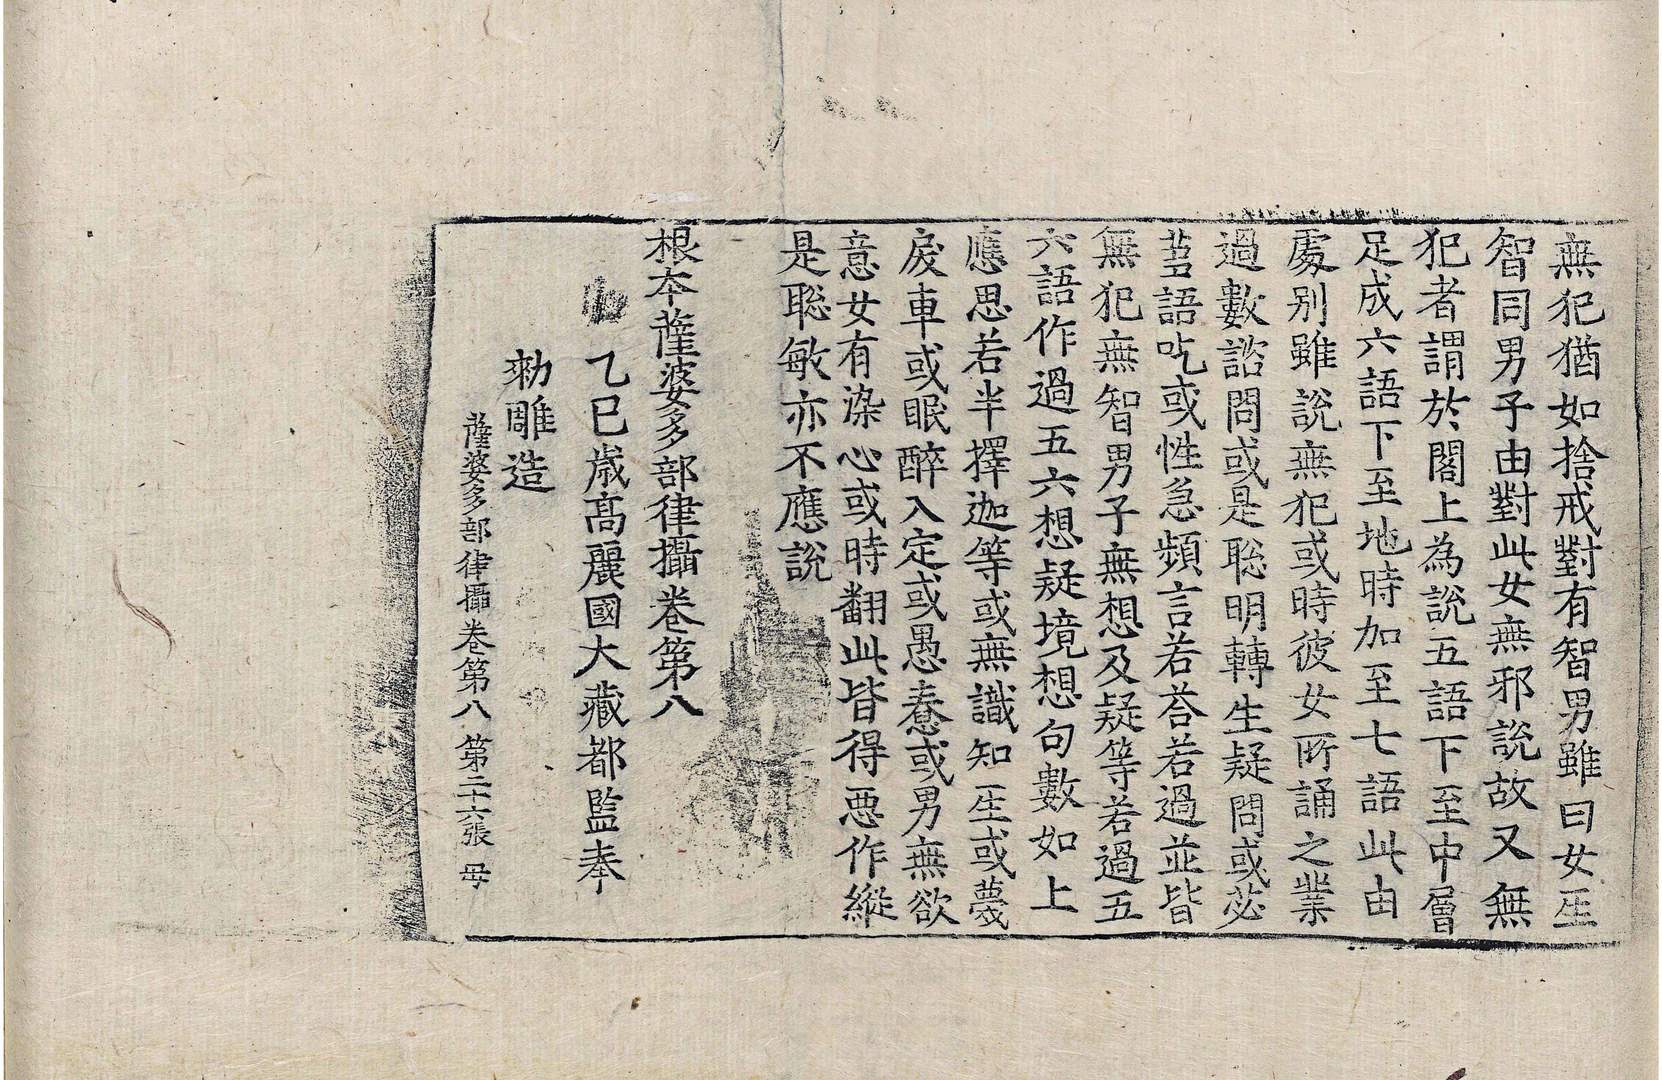 無犯猶如捨戒對有智男雖曰女生
智同男子由對此女無邪說故又無
犯者謂於閣上為說五語下至中層
足成六語下至地時加至七語此由
處別雖說無犯或時彼女所誦之業
過數諮問或是聡明轉生疑問或苾
蒭語吃或性急頻言若荅若過並皆
無犯無智男子無想及疑等若過五
六語作過五六想疑境想句數如上
應思若半擇迦等或無識知生或蕽
戾車或眠醉入定或愚惷或男無欲
意女有染心或時翻此皆得惡作縱
是聡敏亦不應說
根夲薩婆多部律攝卷第八
乙巳歲高麗國大藏都監奉
勑雕造
薩婆多部律攝卷第八 第二十六張 母